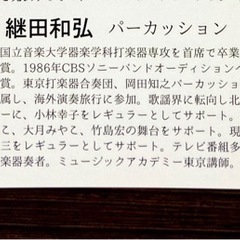 継田和弘 パーカッション
国立音楽大学器楽学科打楽器専攻を首席で卒業
賞。1986年CBSソニーバンドオーディションへ
賞。東京打楽器合奏団、岡田知之パーカッション
属し、海外演奏旅行に参加。歌謡界に転向し北
ーに、小林幸子をレギュラーとしてサポート。
こ、大月みやこ、竹島宏の舞台をサポート。現
三をレギュラーとしてサポート。テレビ番組多
楽器奏者。ミュージックアカデミー東京講師。